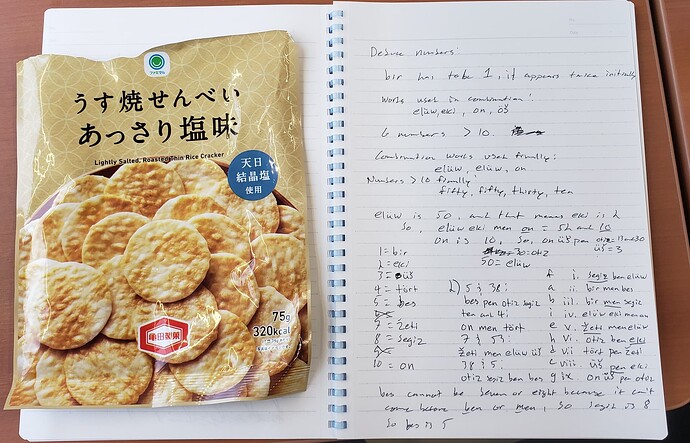 ファミマル
うす焼せんべい
あっさり塩味
Lightly Salted, Roasted Thin Rice Cracker
天日
結晶塩
使用
75g
320kcal
亀田製菓
Deduce numbers:
bir has to be 1, it appears twice initially
words used in combination:
elüw, eki, on, üš
6 numbers > 10.
Combination words used finally:
elüw, elüw, on
Numbers > 10 finally
fifty, fifty, thirty, ten
elüw is 50, and that means eki is 2
So, elüw eki men on = 52 and 10
on is 10, so, on üš pen otiz = 13 and 30
üš = 3
1 = bir
30 = otiz
2 = eki
50 = elüw
3 = üš
4 = tört
5 = bes
7 = žeti
8 = segiz
10 = on
2) 5 & 38:
bes pen otiz segiz
ten and 4:
on men tört
7 & 53:
žeti men elüw üš
38 & 5:
otiz segiz ben bes
f i. segiz ben elüw
a ii. bir men bes
b iii. bir men segiz
i iv. elüw eki men on
e v. žeti men elüw
h vi. otiz ben eki
d vii tört pen žeti
c viii. üš pen eki
g ix on üš pen otiz
bes cannot be seven or eight because it can't
come before ben or men, so segiz is 8
So bes is 5